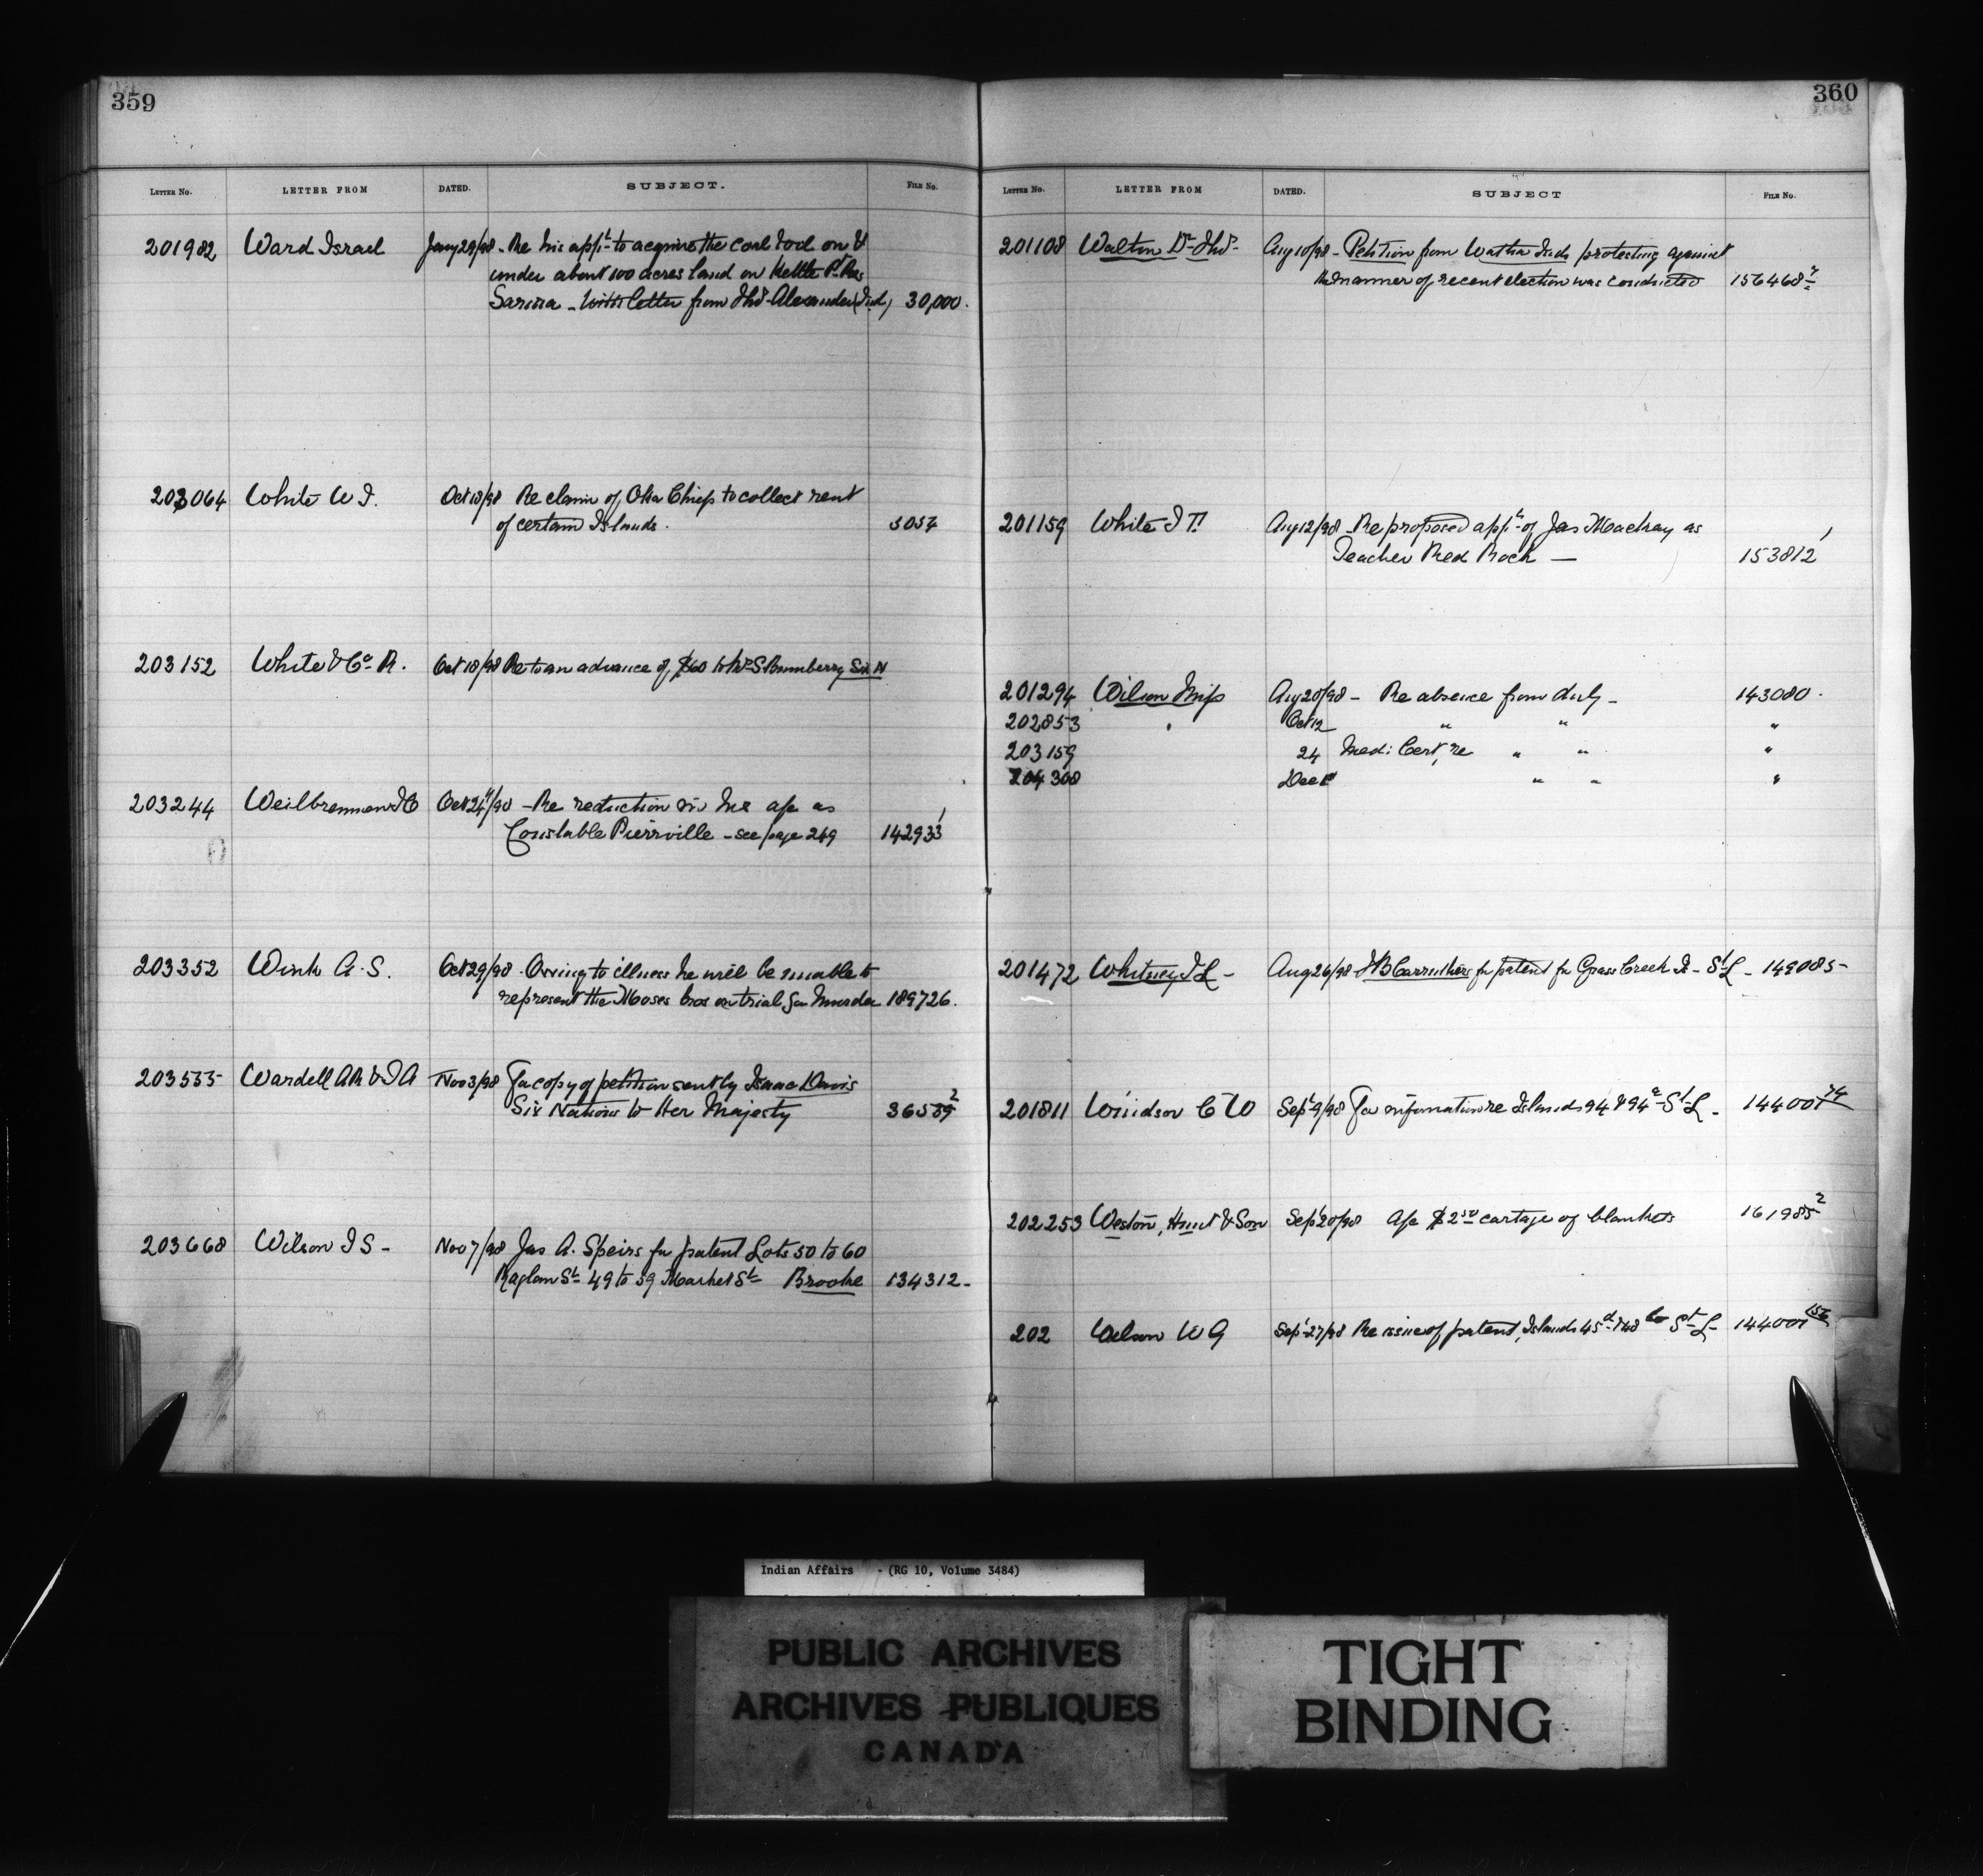 359
LETTER No. LETTER FROM DATED. SUBJECT. FILE No.
201982 Ward Israel Jany 29/98 - Re his appn to acquire the coal & oil on &
under about 100 acres land on Kettle Pt. Res
Sarnia - With letter from Thos Alexander (Ind) 30,000.
203064 White W J. Oct 18/98 Re claim of Oka Chiefs to collect rent
of certain Islands. 3057
203152 White & Co. R. Oct 18/98 Re to an advance of $60 to S Bumberry Six N
203244 Oct 24/98 - Re reduction in his a/c as
Constable Pierrville - see page 249 142933 1
203352 Wink A. S. Oct 29/98 - Owing to illness he will be unable to
represent the Moses bros on trial for Murder 189726.
203555 Wardell AR & J A Nov 3/98 For copy of petition sent by Isaac Davis
Six Nations to Her Majesty 36589 2
203668 Wilson J S - Nov 7/98 Jas A. Speirs for patent Lots 50 to 60
Raglan St. 49 to 59 Market St Brooke 134312 -
360
LETTER No. LETTER FROM DATED. SUBJECT FILE No.
201108 Walton Dr Thos - Aug 10/98 - Petition from Watha Inds protesting against
the manner of recent election was conducted 156468
201159 White J T. Aug 12/98 - Re proposed appt of Jas Mackay as
Teacher Red Rock — 153812 1
201294 Wilson Miss Aug 20/98 - Re absence from duty - 143080 -
202853 " Oct 12 " " "
203159 24 Medi: Cert, re " " "
204308 Dec 1st " " "
201472 Whitney J L - Aug 26/98 J B Carruthers for patent for Grass Creek Is - St L - 149085 -
201811 Windsor C W Sept 9/98 For information re Islands 94 & 94a - St L - 144001 74
202253 Weston, Hunt & Son Sept 20/98 A/c $2 50 cartage of blankets 161985 2
202 Wilson W G Sept 27/98 Re issue of patent, Islands 45d & 48 St L - 144001 156
Indian Affairs - (RG 10, Volume 3484)
PUBLIC ARCHIVES
ARCHIVES PUBLIQUES
CANADA
TIGHT
BINDING